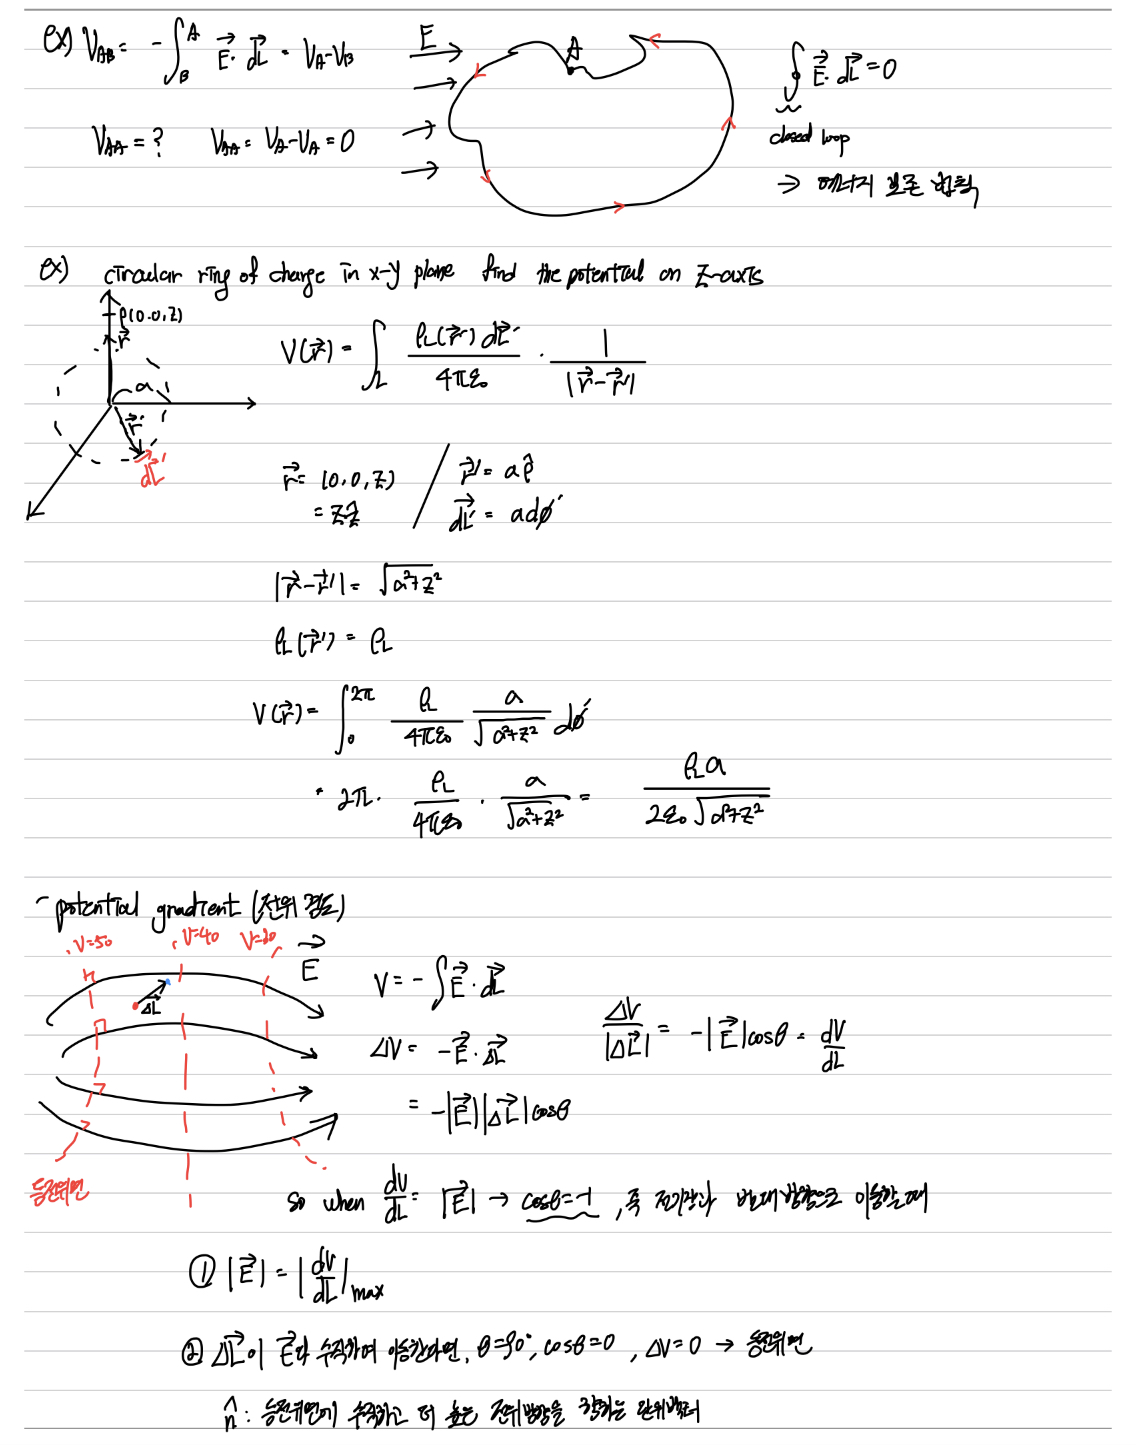 ex) V_AB = -∫_B^A E⃗·dL⃗ = V_A-V_B
E
A
∮ E⃗·dL⃗ = 0
V_AA = ? V_AA = V_A-V_A = 0
closed loop
→ 에너지 보존 법칙
ex) circular ring of charge in x-y plane find the potential on z-axis
P(0.0,z)
r⃗
a
r⃗'
dL⃗'
V(r⃗) = ∫_L ρ_L(r⃗')dL⃗' / 4πε₀ · 1 / |r⃗-r⃗'|
r⃗ = (0,0,z) / r⃗' = aρ̂
= zẑ dL⃗' = adφ'
|r⃗-r⃗'| = √(a²+z²)
ρ_L(r⃗') = ρ_L
V(r⃗) = ∫_0^2π ρ_L / 4πε₀ a / √(a²+z²) dφ'
= 2π · ρ_L / 4πε₀ · a / √(a²+z²) = ρ_L a / 2ε₀√(a²+z²)
- potential gradient (전위 경도)
V=50 V=40
E⃗
ΔL⃗
등전위면
V = -∫E⃗·dL⃗
ΔV = -E⃗·ΔL⃗ ΔV / |ΔL⃗| = -|E⃗|cosθ = dV / dL
= -|E⃗||ΔL⃗|cosθ
so when dV/dL = |E⃗| → cosθ=-1, 즉 전기장과 반대방향으로 이동할때
① |E⃗| = |dV/dL|max
② ΔL⃗이 E⃗와 수직하여 이동한다면, θ=90°, cosθ=0, ΔV=0 → 등전위면
n̂ : 등전위면에 수직하고 더 높은 전위방향을 향하는 단위벡터